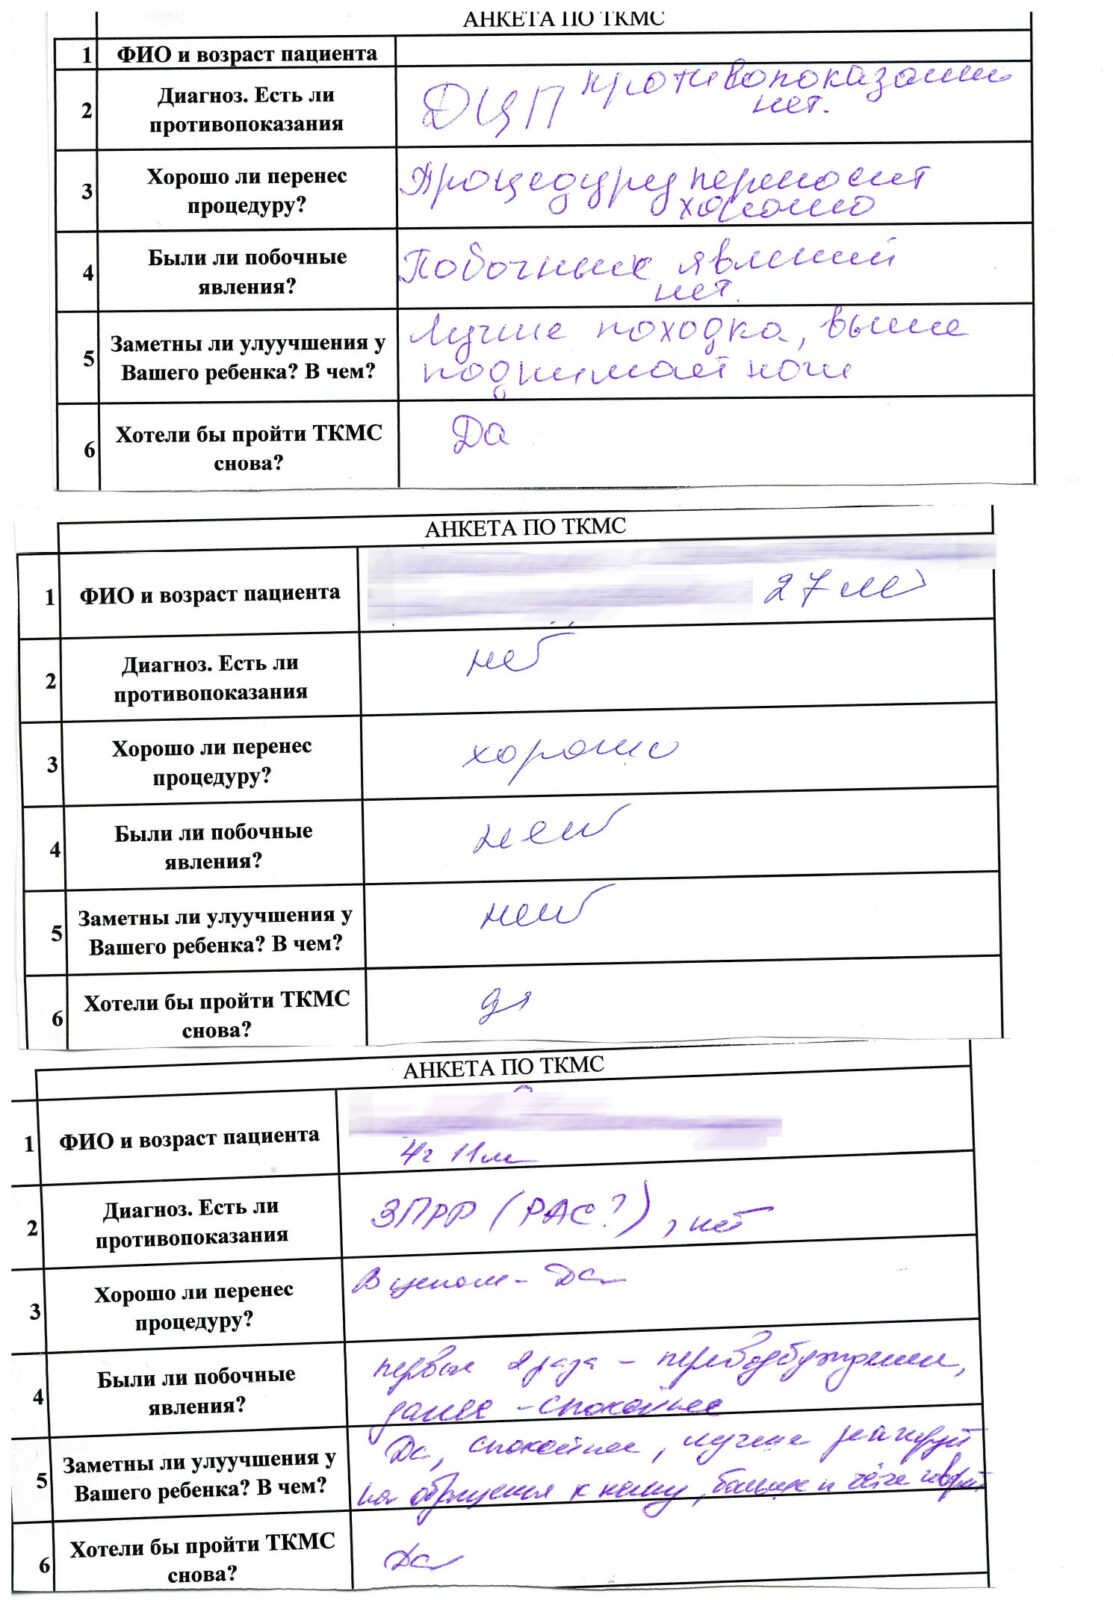 АНКЕТА ПО ТКМС
1 ФИО и возраст пациента
2 Диагноз. Есть ли
противопоказания
ДЦП противопоказаний
нет.
3 Хорошо ли перенес
процедуру?
Процедуру переносит
хорошо
4 Были ли побочные
явления?
Побочных явлений
нет.
5 Заметны ли улуучшения у
Вашего ребенка? В чем?
Лучше походка, выше
поднимает ноги
6 Хотели бы пройти ТКМС
снова?
Да
АНКЕТА ПО ТКМС
1 ФИО и возраст пациента
27 лет
2 Диагноз. Есть ли
противопоказания
нет
3 Хорошо ли перенес
процедуру?
хорошо
4 Были ли побочные
явления?
нет
5 Заметны ли улуучшения у
Вашего ребенка? В чем?
нет
6 Хотели бы пройти ТКМС
снова?
да
АНКЕТА ПО ТКМС
1 ФИО и возраст пациента
4г 11м
2 Диагноз. Есть ли
противопоказания
ЗПРР (РАС?), нет
3 Хорошо ли перенес
процедуру?
В целом - Да
4 Были ли побочные
явления?
первые 2 раза - перевозбуждение,
далее - спокойнее
5 Заметны ли улуучшения у
Вашего ребенка? В чем?
Да, спокойнее, лучше реагирует
на обращения к нему, больше и чётче говорит
6 Хотели бы пройти ТКМС
снова?
Да